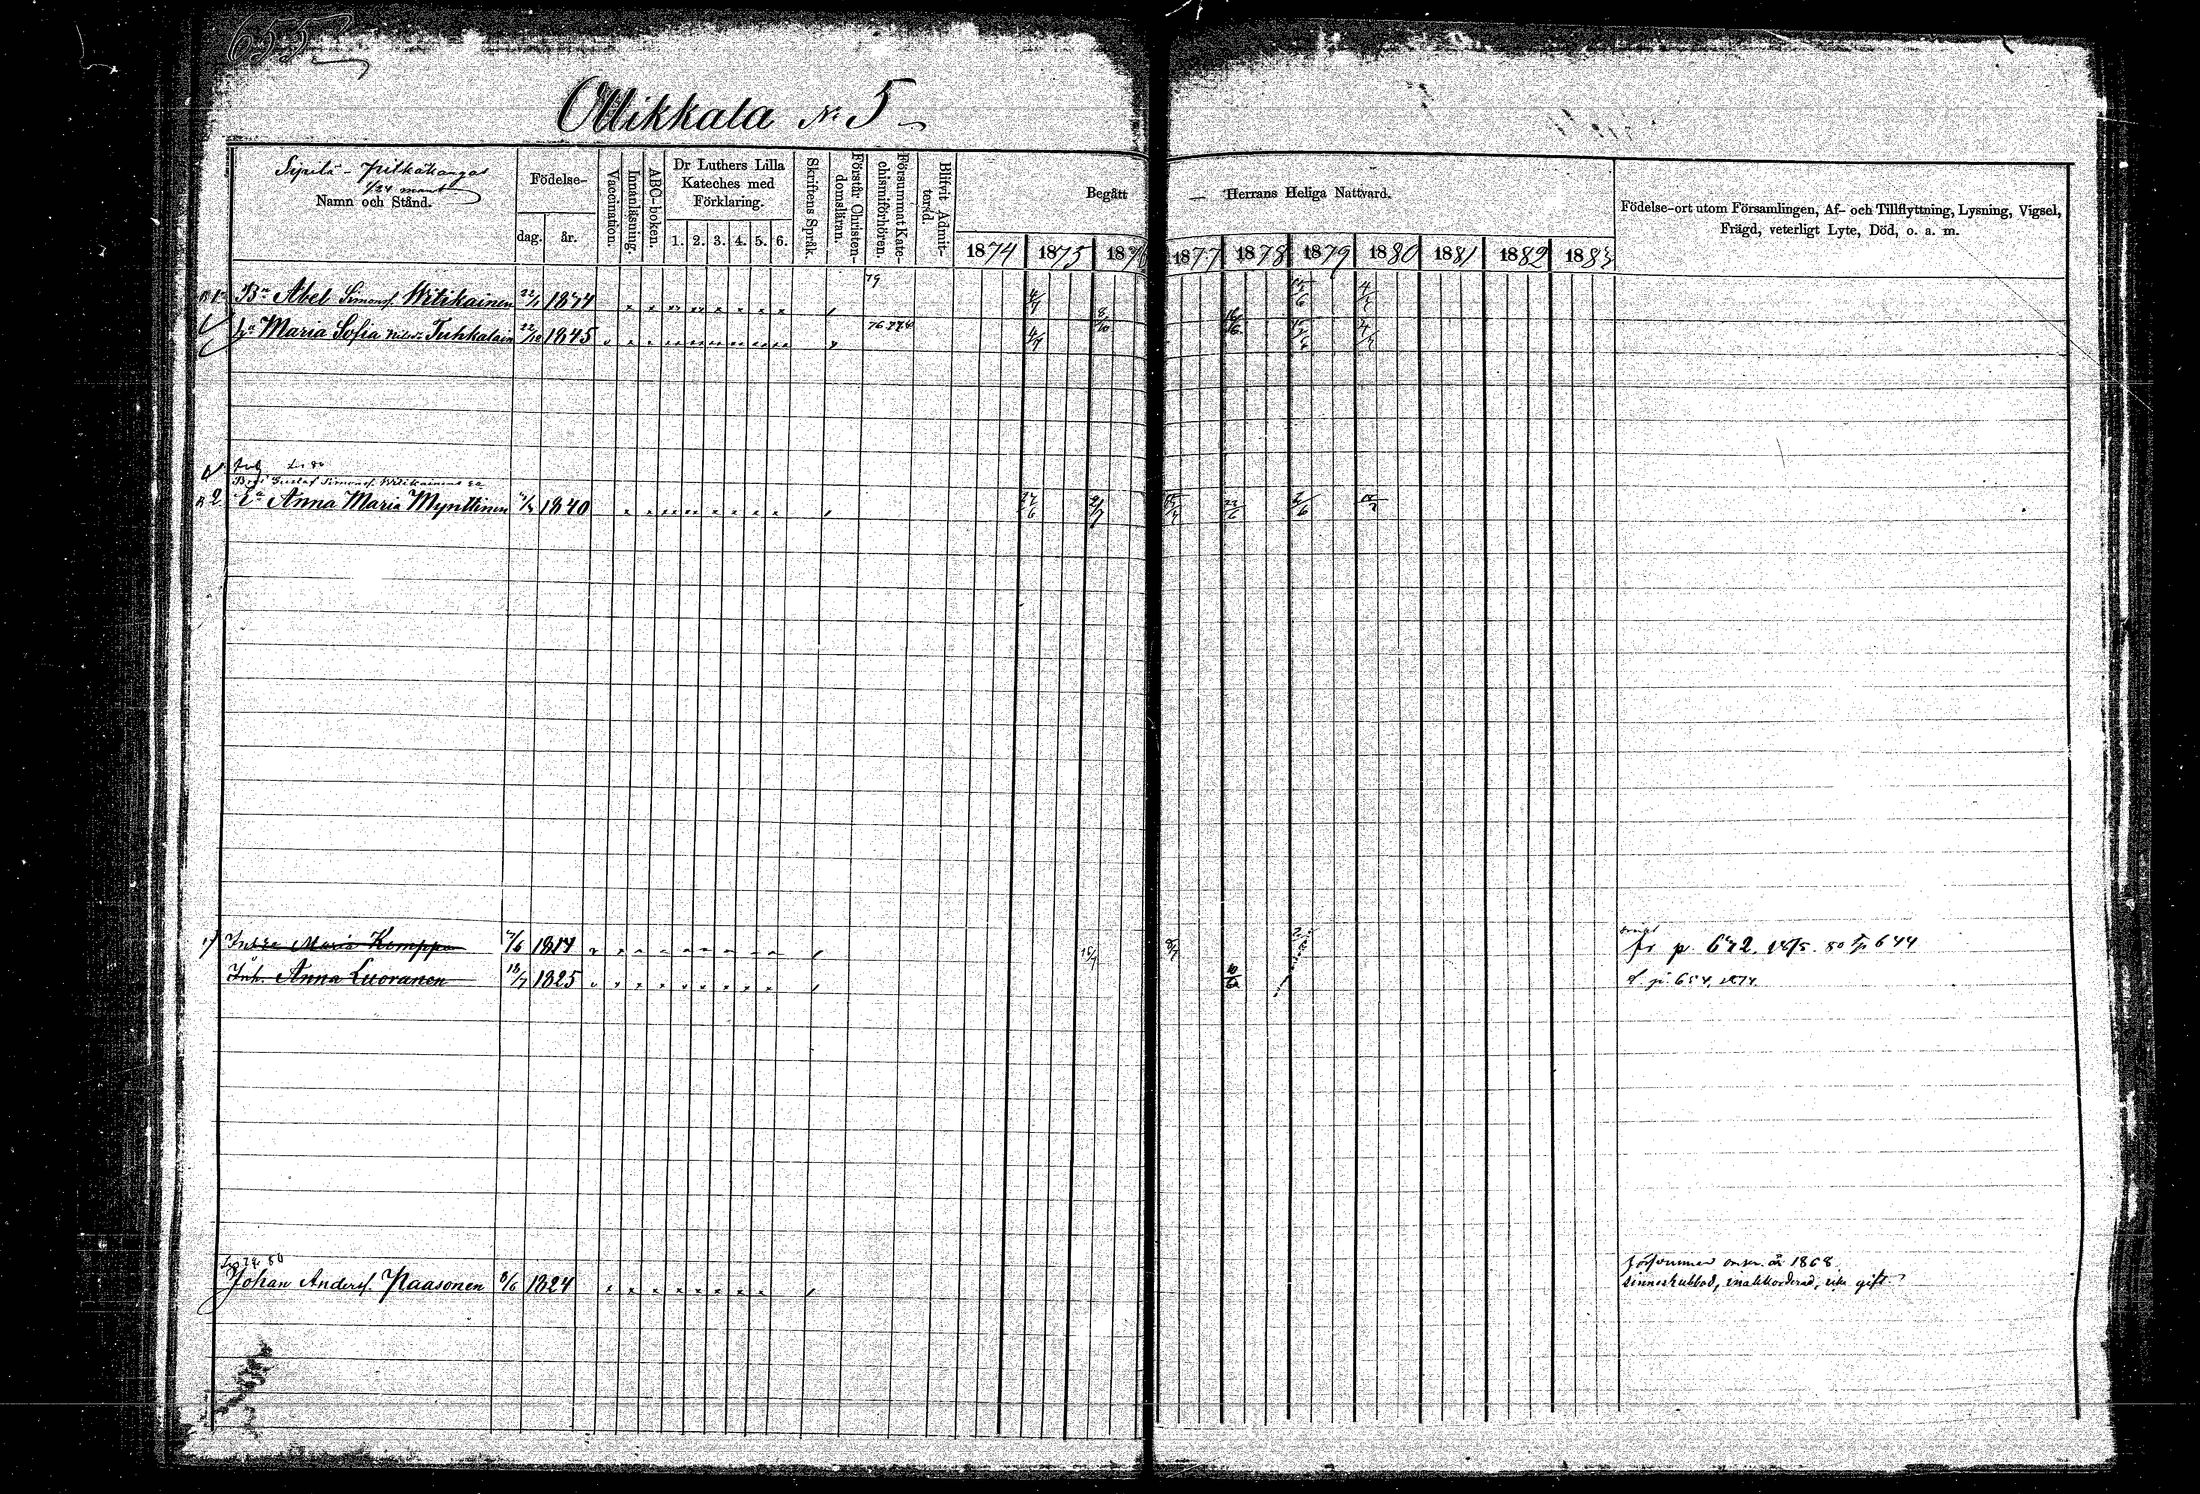 655
Ollikkala No 5
Sipilä - Pitkäkangas
1/24 mant
Namn och Stånd.
Födelse-
dag. år.
Vaccination.
Innanläsning.
ABC-boken.
Dr Luthers Lilla
Kateches med
Förklaring.
1. 2. 3. 4. 5. 6.
Skriftens Språk.
Förstår Christen-
domsläran.
Försummat Kate-
chismiförhören.
Blifvit Admit-
terad.
Begått Herrans Heliga Nattvard.
1874 1875 1876 1877 1878 1879 1880 1881 1882 1883
Födelse-ort utom Församlingen, Af- och Tillflyttning, Lysning, Vigsel,
Frägd, veterligt Lyte, Död, o. a. m.
Bn Abel Simonsf. Witikainen 22/1 1844 79 4/7 15/6 4/7
hu Maria Sofia Nilsdr Tuhkalain 22/10 1845 4/7 8/10 4/7
Bror Gustaf Simonsf. Witikainens Ea
2 Ea Anna Maria Mynttinen 1840 27/6 2/7 22/6 2/6
Maria Komppa 7/6 1814 15/7 8/7 fr p. 642. 80 p 644
Inh. Anna Luoranen 18/7 1825 p. 654, 1874.
80
Johan Andersf. Paasonen 8/6 1824 1868
sinnesrubbad, gift